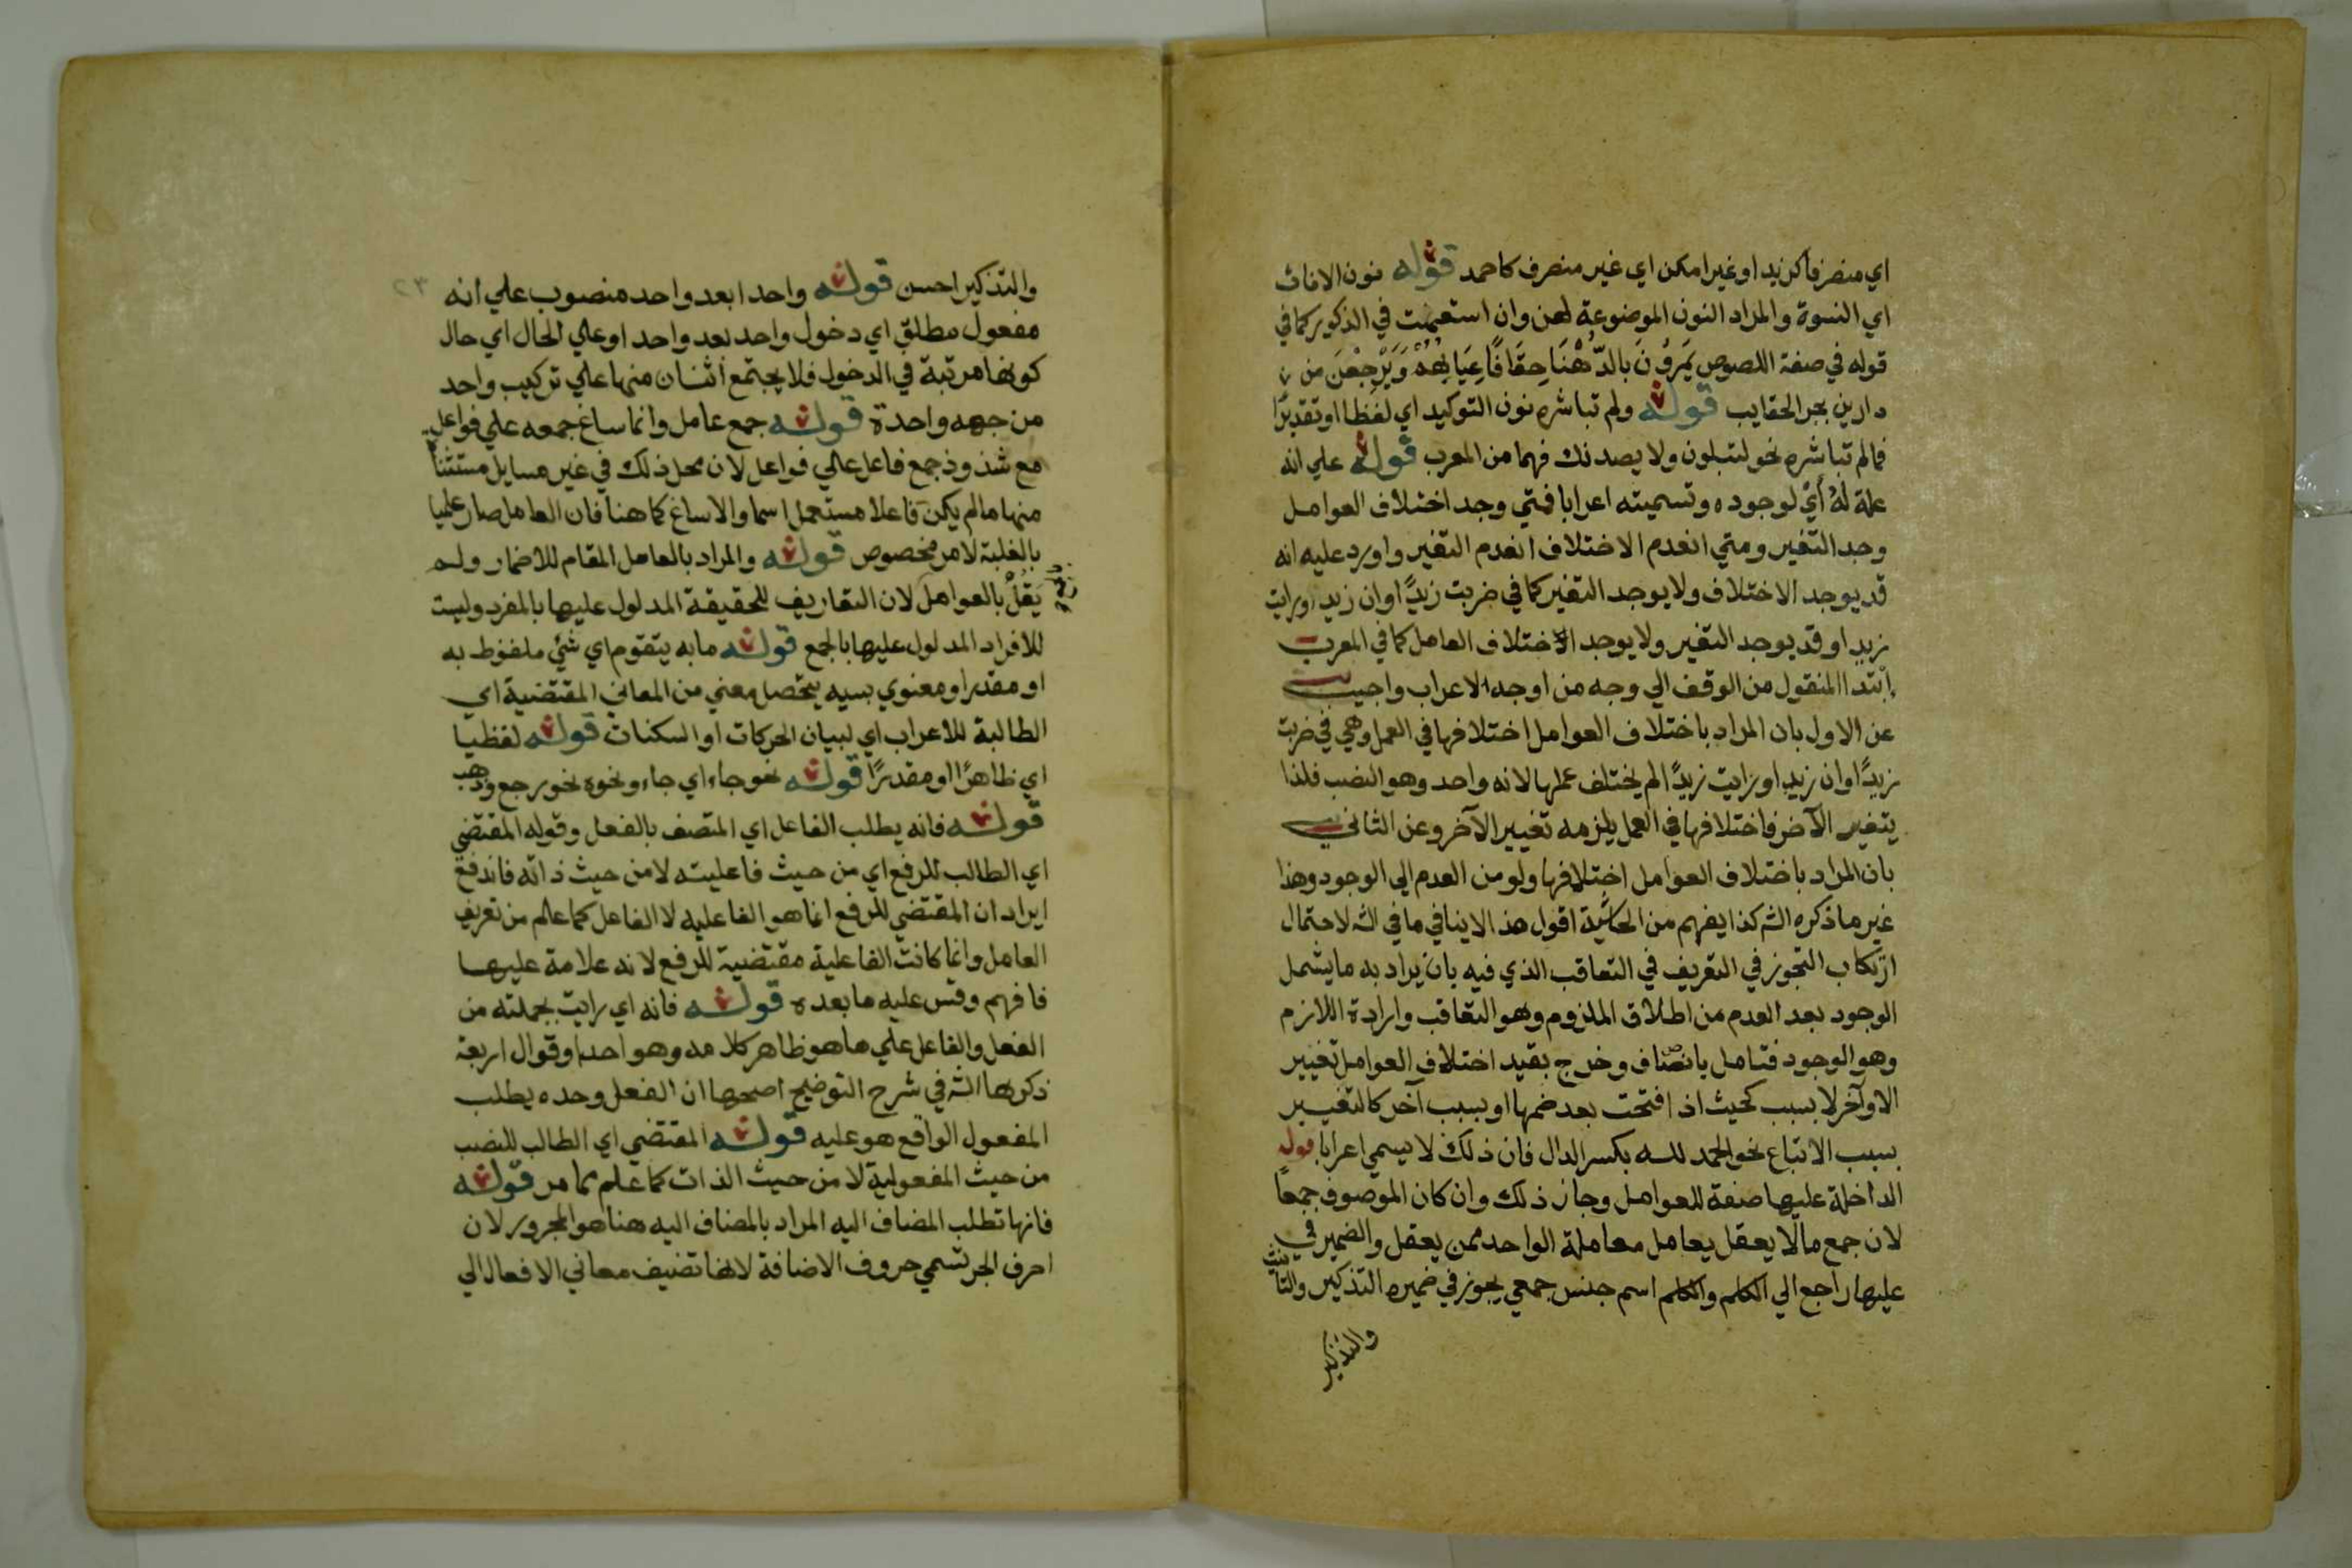 اي منصرفا كزيد او غير امكن اي غير منصرف كاحمد قوله نون الاناث
اي النسوة والمراد النون الموضوعة لهن وان استعملت في الذكور كما في
قوله في صفة اللصوص يَمَرُّونَ بالدَّهْنَا خِفَافًا عِيَابُهُمْ وَيَرْجِعْنَ من
دارين بجر الحقايب قوله ولم تباشره نون التوكيد اي لفظا او تقديرًا
فما لم تباشره نحو لتبلون ولا يصدنك فهما من المعرب قوله علي انه
علة لهُ أَيْ لوجوده وتسميته اعرابا فمتي وجد اختلاف العوامل
وجد التغير ومتي انعدم الاختلاف انعدم التغير واورد عليه انه
قد يوجد الاختلاف ولا يوجد التغير كما في ضربت زيدًا وان زيدا ورايت
زيدا وقد يوجد التغير ولا يوجد الاختلاف العامل كما في المعرب
ابتدا المنقول من الوقف الي وجه من اوجه الاعراب واجيب
عن الاول بان المراد باختلاف العوامل اختلافها في العمل وهي في ضربت
زيدًا وان زيدا ورايت زيدًا لم يختلف عملها لانه واحد وهو النصب فلذا
يتغير الآخر فاختلافها في العمل يلزمه تغيير الآخر وعن الثاني
بان المراد باختلاف العوامل اختلافها ولو من العدم الي الوجود وهذا
غير ما ذكره الش كذا يفهم من الحاشية اقول هذا لا ينافي ما في الش لاحتمال
ارتكاب التجوز في التعريف في التعاقب الذي فيه بان يراد به ما يشمل
الوجود بعد العدم من اطلاق الملزوم وهو التعاقب وارادة اللازم
وهو الوجود فتامل بانصاف وخرج بقيد اختلاف العوامل تغيير
الاواخر لا بسبب كحيث اذا فتحت بعد ضمها او بسبب آخر كالتغيير
بسبب الاتباع نحو الحمد لله بكسر الدال فان ذلك لا يسمي اعرابا قوله
الداخلة عليها صفة للعوامل وجاز ذلك وان كان الموصوف جمعا
لان جمع ما لا يعقل يعامل معاملة الواحد ممن يعقل والضمير في
عليها راجع الي الكلم والكلم اسم جنس جمعي يجوز في ضميره التذكير والتانيث
والتذكير
٢٣
والتذكير احسن قوله واحدا بعد واحد منصوب علي انه
مفعول مطلق اي دخول واحد بعد واحد او علي الحال اي حال
كونها مرتبة في الدخول فلا يجتمع اثنان منها علي تركيب واحد
من جهه واحدة قوله جمع عامل وانما ساغ جمعه علي فواعل
مع شذوذ جمع فاعل علي فواعل لان محل ذلك في غير مسايل مستثناة
منها ما لم يكن فاعلا مستعمل اسما والا ساغ كما هنا فان العامل صار علميا
بالغلبة لامر مخصوص قوله والمراد بالعامل المقام للاضمار ولم
يَقُلْ بالعوامل لان التعاريف للحقيقة المدلول عليها بالمفرد وليست
للافراد المدلول عليها بالجمع قوله ما به يتقوم اي شئ ملفوظ به
او مقدر او معنوي بسببه يتحصل معني من المعاني المقتضية اي
الطالبة للاعراب اي لبيان الحركات او السكنات قوله لفظيا
اي ظاهرًا او مقدرًا قوله نحو جاء اي جاء ونحوه نحو رجع وذهب
قوله فانه يطلب الفاعل اي المتصف بالفعل وقوله المقتضي
اي الطالب للرفع اي من حيث فاعليته لا من حيث ذاته فاندفع
ايراد ان المقتضي للرفع انما هو الفاعليه لا الفاعل كما علم من تعريف
العامل وانما كانت الفاعلية مقتضية للرفع لانه علامة عليها
فافهم وقس عليه ما بعده قوله فانه اي رايت بجملته من
الفعل والفاعل علي ما هو ظاهر كلامه وهو احد اقوال اربعة
ذكرها الش في شرح التوضيح اصحها ان الفعل وحده يطلب
المفعول الواقع هو عليه قوله المقتضي اي الطالب للنصب
من حيث المفعولية لا من حيث الذات كما علم مما مر قوله
فانها تطلب المضاف اليه المراد بالمضاف اليه هنا هو المجرور لان
احرف الجر تسمي حروف الاضافة لانها تضيف معاني الافعال الي